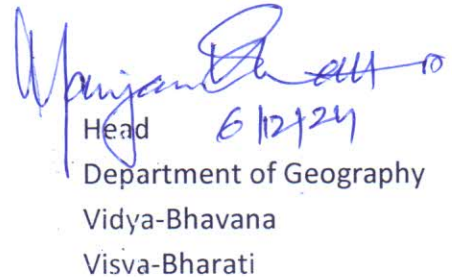 Head 6/12/24
Department of Geography
Vidya-Bhavana
Visva-Bharati